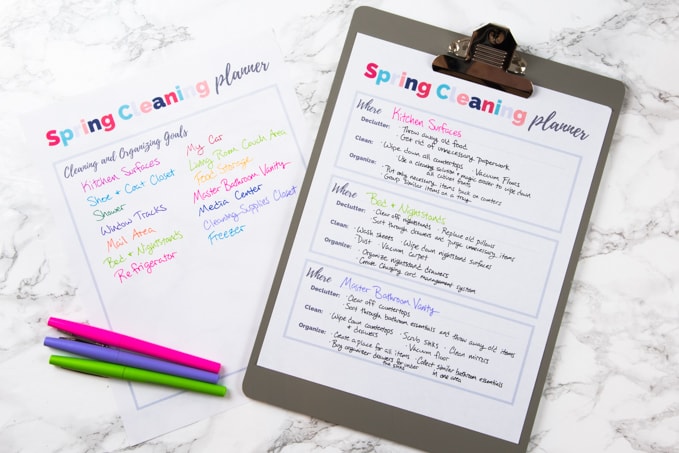 Spring Cleaning planner
Cleaning and Organizing Goals
Kitchen Surfaces
Shoe & Coat Closet
Shower
Window Tracks
Mail Area
Bed & Nightstands
Refrigerator
My Car
Living Room Couch Area
Food Storage
Master Bathroom Vanity
Media Center
Cleaning Supplies Closet
Freezer
Spring Cleaning planner
Where Kitchen Surfaces
Declutter: · Throw away old food
· Get rid of unnecessary paperwork
Clean: · Wipe down all countertops · Vacuum Floors
· Use a cleaning solution & magic eraser to wipe down
all cabinet fronts
Organize: · Put only necessary items back on counters
· Group similar items on a tray
Where Bed & Nightstands
Declutter: · Clear off nightstands · Replace old pillows
· Sort through drawers and purge unnecessary items
Clean: · Wash sheets · Wipe down nightstand surfaces
· Dust · Vacuum carpet
Organize: · Organize nightstand drawers
· Create charging cord management system
Where Master Bathroom Vanity
Declutter: · Clear off countertops
· Sort through bathroom essentials and throw away old items
Clean: · Wipe down countertops · Scrub sinks · Clean mirrors
& drawers · Vacuum floor
Organize: · Create a place for all items · Collect similar bathroom essentials
in one area
· Buy organizer drawers for under
the sink